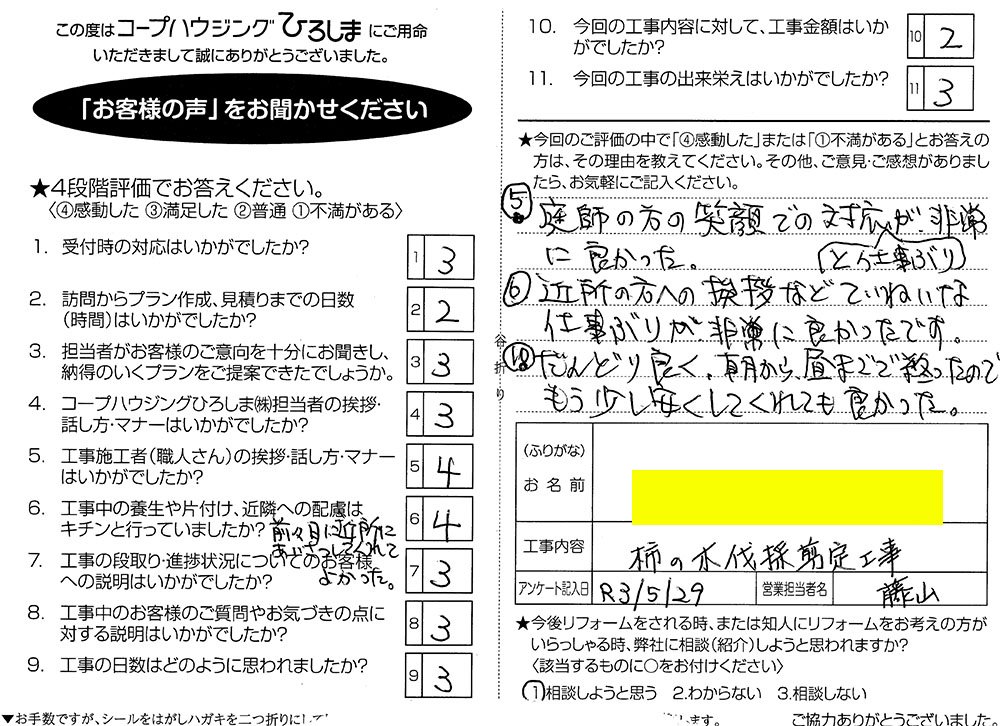 この度はコープハウジングひろしまにご用命
いただきまして誠にありがとうございました。
「お客様の声」をお聞かせください
★4段階評価でお答えください。
〈④感動した ③満足した ②普通 ①不満がある〉
1. 受付時の対応はいかがでしたか?
1 3
2. 訪問からプラン作成、見積りまでの日数
(時間)はいかがでしたか?
2 2
3. 担当者がお客様のご意向を十分にお聞きし、
納得のいくプランをご提案できたでしょうか。
3 3
4. コープハウジングひろしま㈱担当者の挨拶・
話し方・マナーはいかがでしたか?
4 3
5. 工事施工者(職人さん)の挨拶・話し方・マナー
はいかがでしたか?
5 4
6. 工事中の養生や片付け、近隣への配慮は
キチンと行っていましたか?
前々日に近所に
あいさつしてくれて
よかった。
6 4
7. 工事の段取り・進捗状況についてのお客様
への説明はいかがでしたか?
7 3
8. 工事中のお客様のご質問やお気づきの点に
対する説明はいかがでしたか?
8 3
9. 工事の日数はどのように思われましたか?
9 3
▼お手数ですが、シールをはがしハガキを二つ折りにして
谷折り
10. 今回の工事内容に対して、工事金額はいか
がでしたか?
10 2
11. 今回の工事の出来栄えはいかがでしたか?
11 3
★今回のご評価の中で「④感動した」または「①不満がある」とお答えの
方は、その理由を教えてください。その他、ご意見・ご感想がありまし
たら、お気軽にご記入ください。
⑤ 庭師の方の笑顔での対応が、非常
に良かった。 (と仕事ぶり)
⑥ 近所の方への挨拶などていねいな
仕事ぶりが、非常に良かったです。
⑩ だんどり良く、朝から、昼までで終ったので
もう少し安くしてくれても良かった。
(ふりがな)
お名前
工事内容 柿の木伐採剪定工事
アンケート記入日 R3/5/29 営業担当者名 藤山
★今後リフォームをされる時、または知人にリフォームをお考えの方が
いらっしゃる時、弊社に相談(紹介)しようと思われますか?
〈該当するものに○をお付けください〉
①相談しようと思う 2.わからない 3.相談しない
します。 ご協力ありがとうございました。